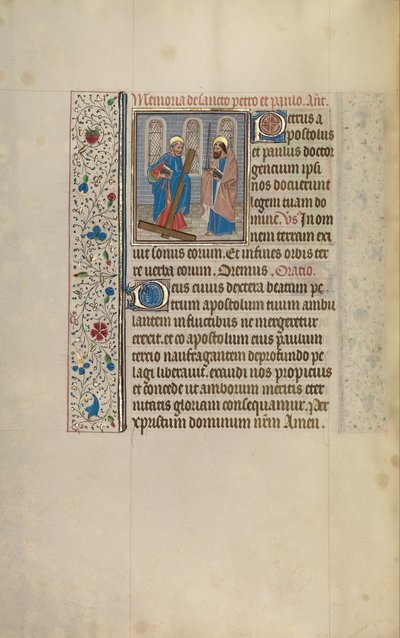 Memoria de sancto petro et paulo. Añt.
Petrus a
postolus
et paulus doctor
gencium ipsi
nos docuerunt
legem tuam do
mine. Vs̄ In om
nem terram exi
uit sonus eorum. Et in fines orbis ter
re verba eorum. Oremus. Oracio.
Deus cuius dextera beatum pe
trum apostolum tuum ambu
lantem in fluctibus ne mergeretur
erexit. et co apostolum eius paulum
tercio naufragantem de profundo pe
lagi liberauit. exaudi nos propicius
et concede ut amborum meritis eter
nitatis gloriam consequamur. Per
xpristum dominum nr̄m Amen.